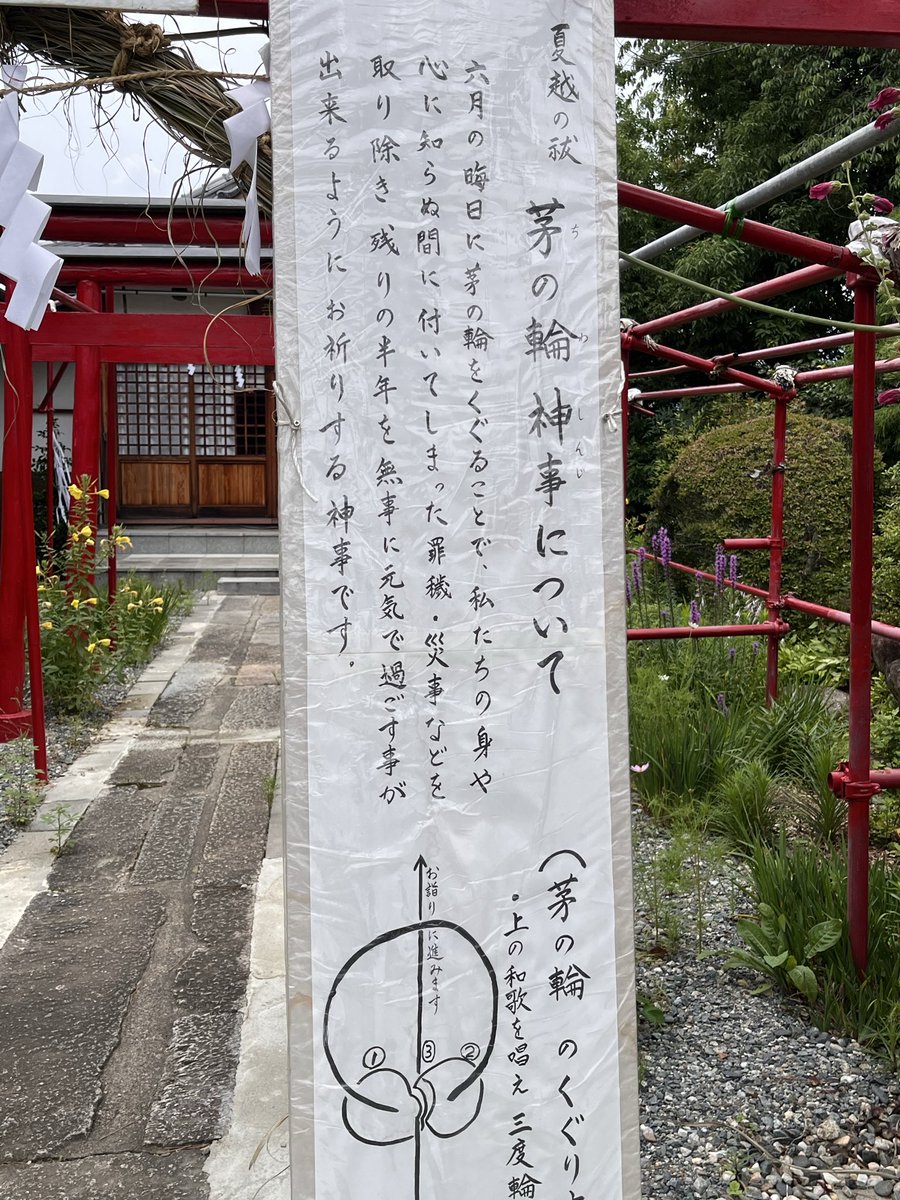 夏越の祓 茅の輪神事について
ち わ しんじ
六月の晦日に茅の輪をくぐることで、私たちの身や
心に知らぬ間に付いてしまった罪穢・災事などを
取り除き、残りの半年を無事に元気で過ごす事が
出来るようにお祈りする神事です。
(茅の輪 のくぐり
・上の和歌を唱え 三度輪
お詣りに進みます
① ③ ②